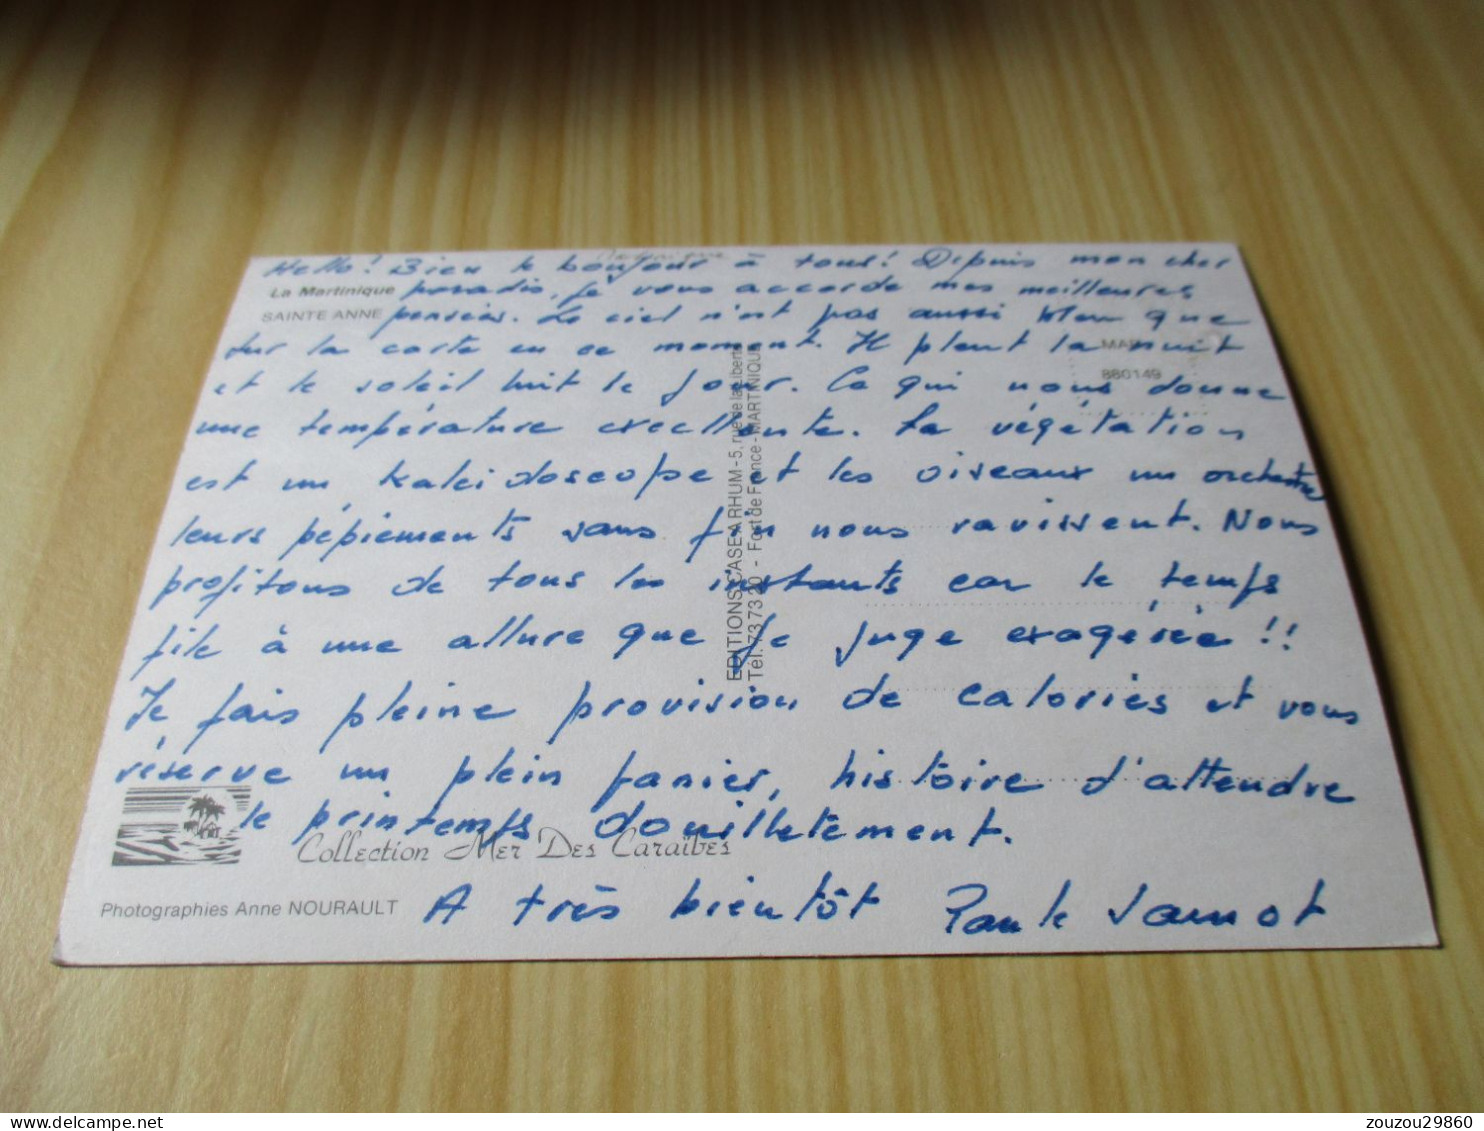 Hello! Bien le bonjour à tous! Depuis mon cher
La Martinique paradis, je vous accorde mes meilleures
SAINTE ANNE pensées. Le ciel n'est pas aussi bleu que
sur la carte en ce moment. Il pleut la nuit
et le soleil luit le jour. Ca qui nous donne
880149
une température excellente. La végétation
est un kaleidoscope et les oiseaux un orchestre
leurs pépiements sans fin nous ravissent. Nous
profitons de tous les instants car le temps
file à une allure que je juge exagérée!!
Je fais pleine provision de calories et vous
réserve un plein panier, histoire d'attendre
le printemps douilletement.
EDITIONS CASE A RHUM - 5, rue de la Liberté
Tél. 73 73 20 - Fort de France - MARTINIQUE
Collection Mer Des Caraïbes
Photographies Anne NOURAULT
A très bientôt Paule Jamot
zouzou29860